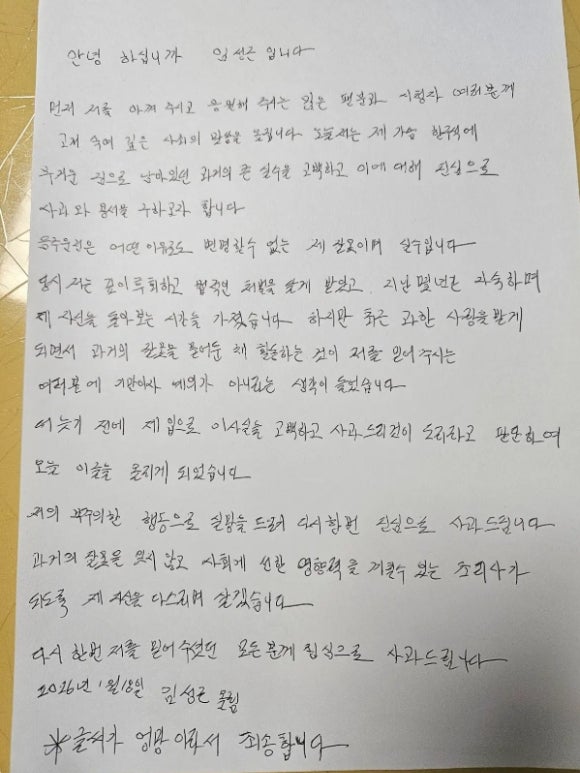 안녕 하십니까 임성근 입니다
먼저 저를 아껴 주시고 응원해 주시는 많은 팬분과 시청자 여러분께
고개 숙여 깊은 사죄의 말씀을 올립니다 오늘 저는 제 가슴 한구석에
무거운 짐으로 남아있던 과거의 큰 실수를 고백하고 이에 대해 진심으로
사과와 용서를 구하고자 합니다
음주운전은 어떤 이유로도 변명할수 없는 제 잘못이며 실수입니다
당시 저는 깊이 후회하고 법적인 처벌을 달게 받았고, 지난 몇년간 자숙하며
제 자신을 돌아보는 시간을 가졌습니다 하지만 최근 과한 사랑을 받게
되면서 과거의 잘못을 묻어둔 채 활동하는 것이 저를 믿어주시는
여러분에 기만이자 예의가 아니라는 생각이 들었습니다
더 늦기 전에 제 입으로 이사실을 고백하고 사과드리는것이 도리라고 판단하여
오늘 이글을 올리게 되었습니다
저의 부주의한 행동으로 실망을 드려 다시한번 진심으로 사과드립니다
과거의 잘못을 잊지 않고 사회에 선한 영향력을 끼칠수 있는 조리사가
되도록 제 자신을 다스리며 살겠습니다
다시 한번 저를 믿어주셨던 모든분께 진심으로 사과드립니다
2026년 1월 18일 임성근 올림
*글씨가 엉망이라서 죄송합니다